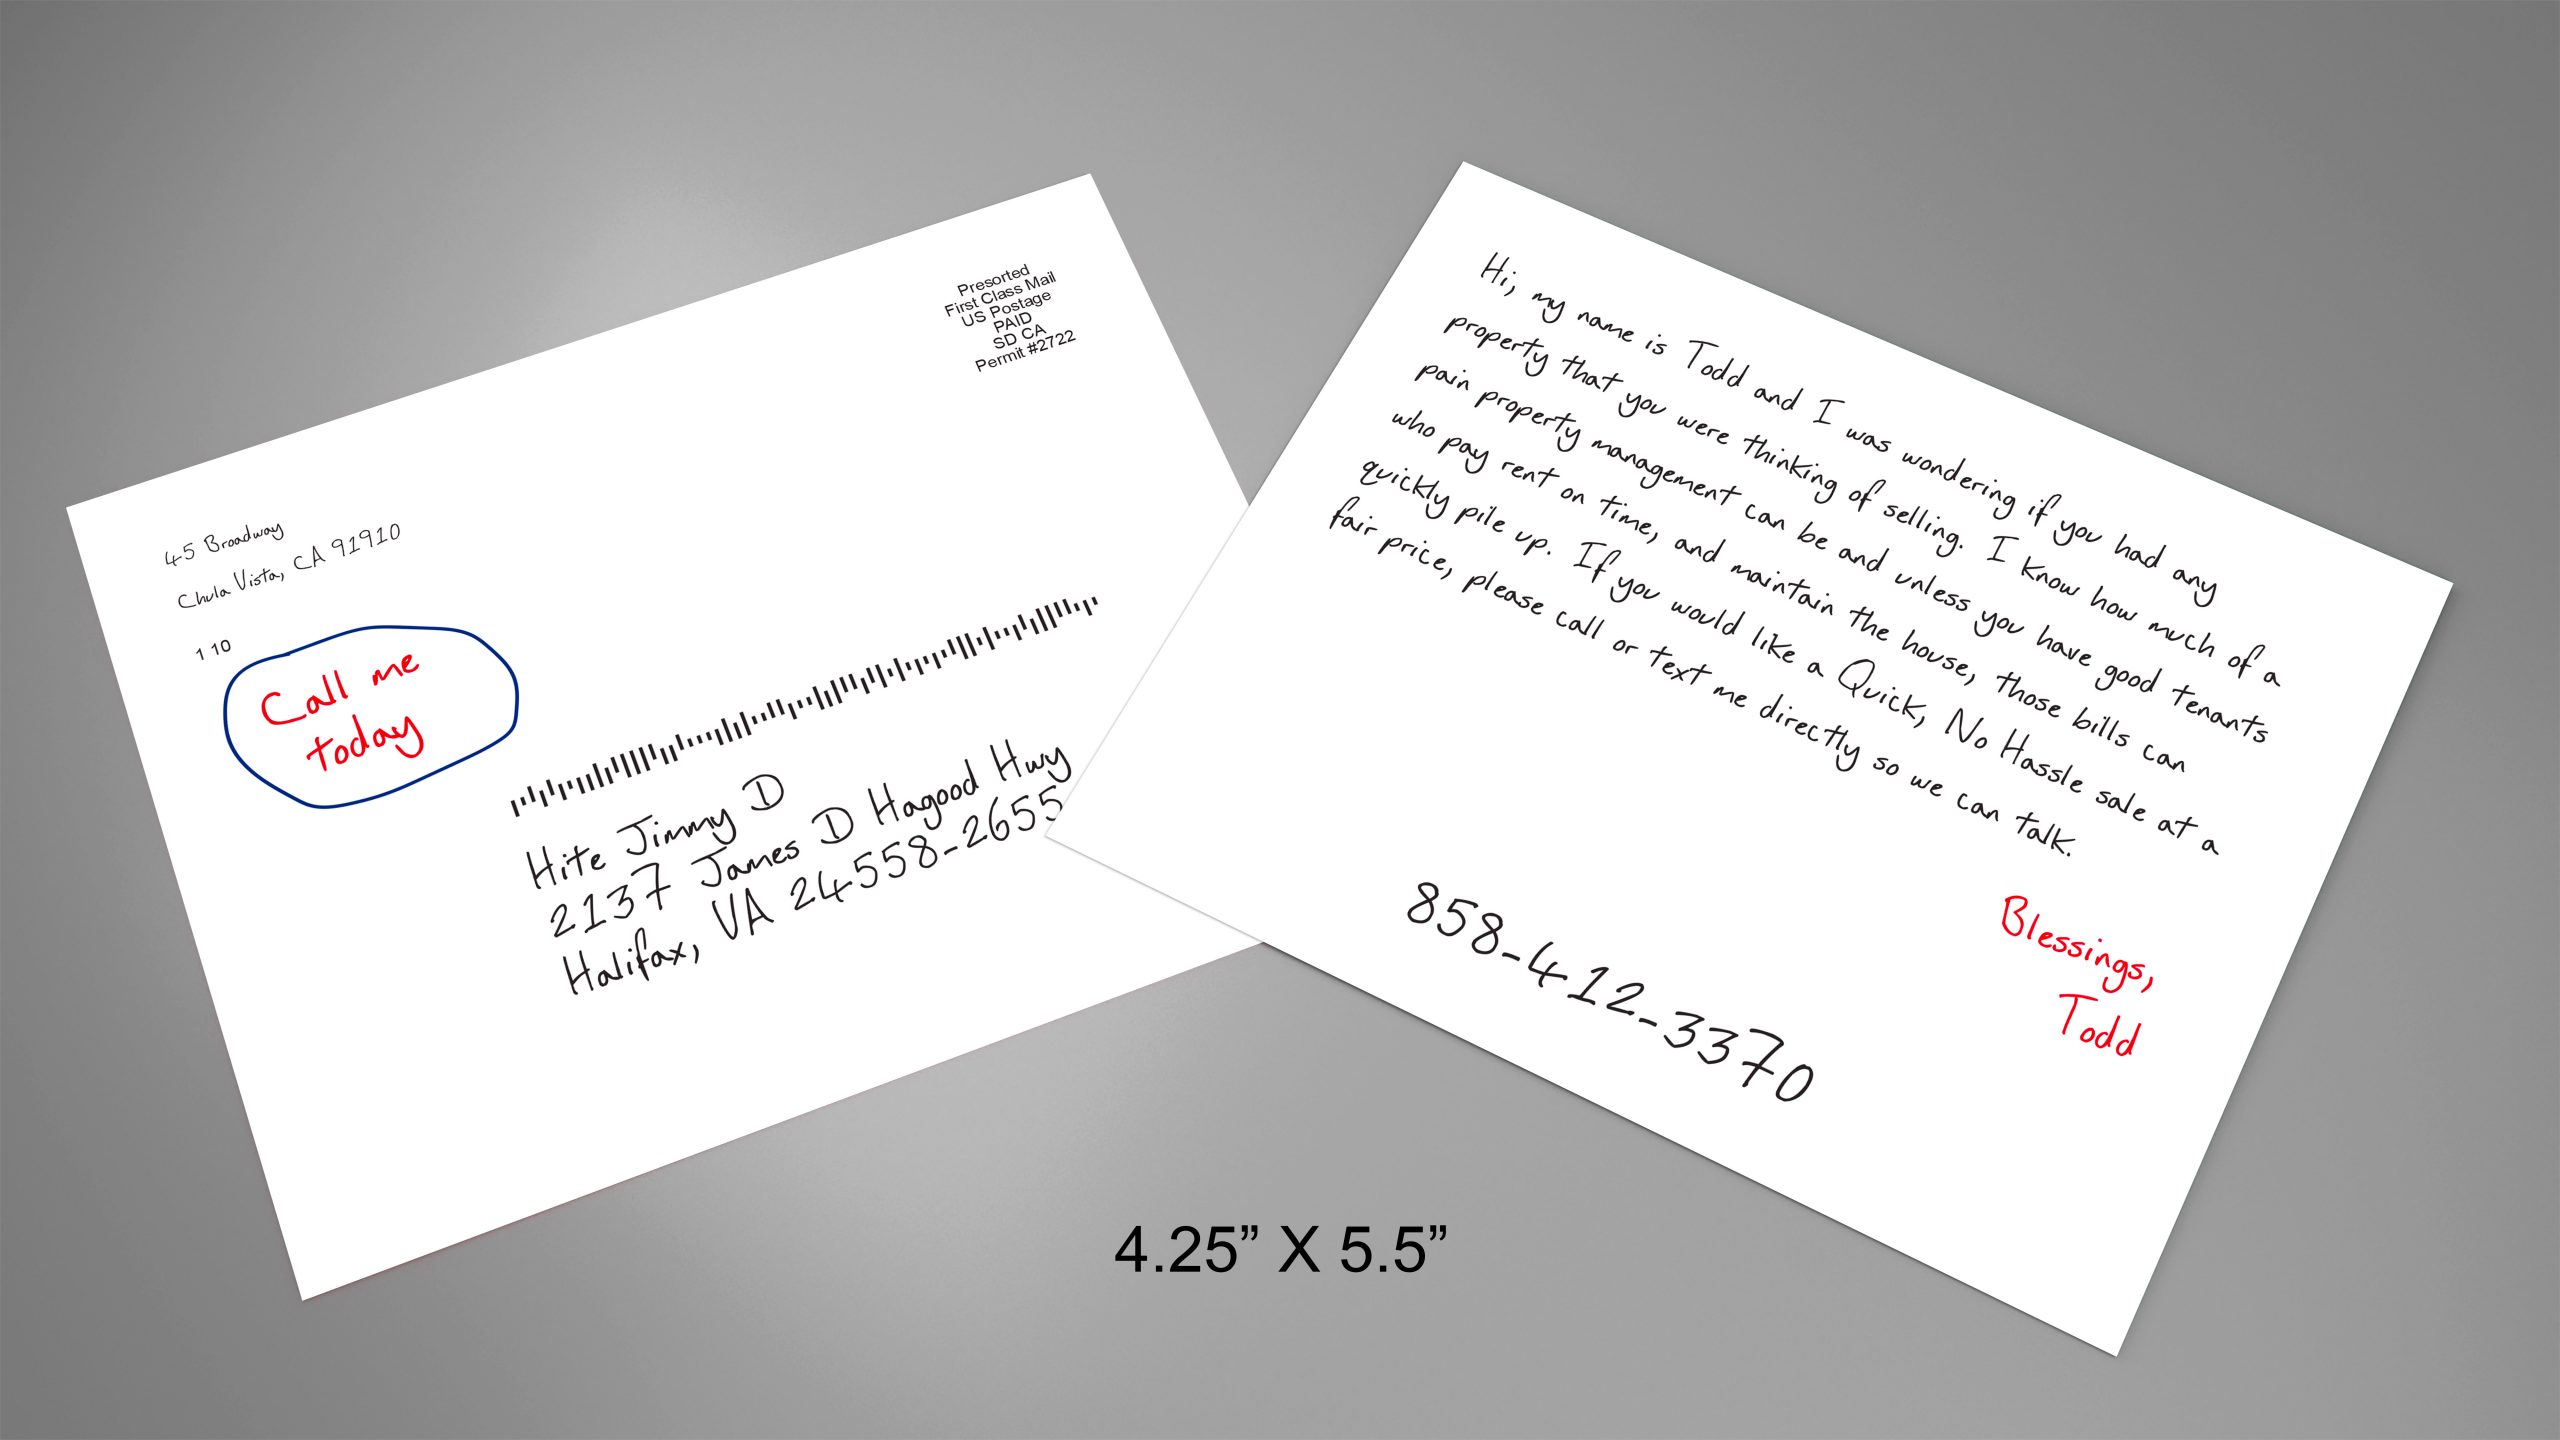 Presorted
First Class Mail
US Postage
PAID
SD CA
Permit #2722
45 Broadway
Chula Vista, CA 91910
1 10
Call me
today
Hite Jimmy D
2137 James D Hagood Hwy
Halifax, VA 24558-2655
Hi, my name is Todd and I was wondering if you had any
property that you were thinking of selling. I know how much of a
pain property management can be and unless you have good tenants
who pay rent on time, and maintain the house, those bills can
quickly pile up. If you would like a Quick, No Hassle sale at a
fair price, please call or text me directly so we can talk.
Blessings,
Todd
858-412-3370
4.25” X 5.5”